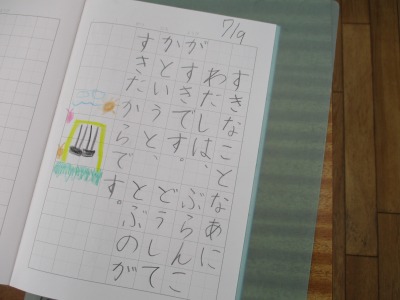 7/9
すきなことなあに
わたしは、ぶらんこ
がすきです。どうして
かというと、とぶのが
すきだからです。